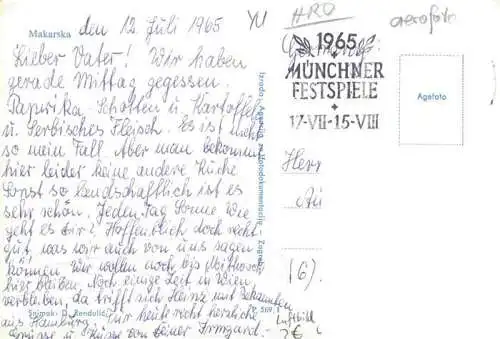 Makarska den 12. Juli 1965
Lieber Vater! Wir haben
gerade Mittag gegessen,
Paprika-Schoten u. Kartoffel
u. Serbisches Fleisch. Es ist nicht
so mein Fall. Aber man bekommt
hier leider keine andere Küche
Sonst so landschaftlich ist es
sehr schön. Jeden Tag Sonne Wie
geht es dir? Hoffentlich doch recht
gut, was wir auch von uns sagen
können Wir wollen noch bis Mittwoch
hier bleiben. Noch einige Zeit in Wien
verbleiben, da trifft sich Heinz mit Bekannten
aus Hamburg. Für heute recht herzliche
Grüsse u. Küsse von deiner Irmgard.
Snimak: D. Rendulić,
Izrada: Agencija za fotodokumentaciju Zagreb
YU
HRO
aerofoto
1965
MÜNCHNER
FESTSPIELE
+
17-VII-15-VIII
Agafoto
Herr
(6)
Luftbild
2€